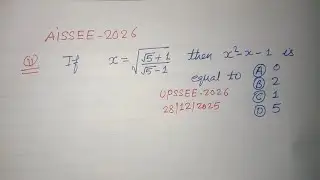 AISSEE-2026
Q If x=√((√5+1)/(√5-1)) then x²-x-1 is
equal to A 0
B 2
UPSSEE-2026 C 1
28/12/2025 D 5